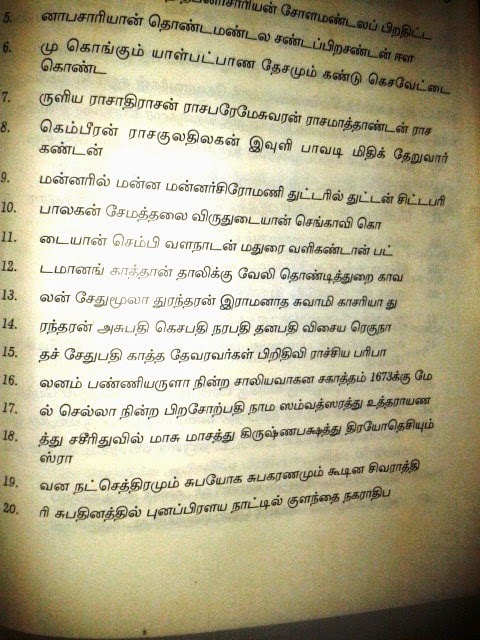 சோளமண்டலப் பிறதிட்ட
5. னாபசாரியான் தொண்டமண்டல சண்டப்பிறசண்டன் ஈள
6. மு கொங்கும் யாள்பட்பாண தேசமும் கண்டு கெசவேட்டை
கொண்ட
7. ருளிய ராசாதிராசன் ராசபரேமேசுவரன் ராசமாத்தாண்டன் ராச
8. கெம்பீரன் ராசகுலதிலகன் இவுளி பாவடி மிதிக் தேறுவார்
கண்டன்
9. மன்னரில் மன்ன மன்னர்சிரோமணி துட்டரில் துட்டன் சிட்டபரி
10. பாலகன் சேமத்தலை விருதுடையான் செங்காவி கொ
11. டையான் செம்பி வளநாடன் மதுரை வளிகண்டான் பட்
12. டமானங் காத்தான் தாலிக்கு வேலி தொண்டித்துறை காவ
13. லன் சேதுமூலா துரந்தரன் இராமனாத சுவாமி காசரியா து
14. ரந்தரன் அசுபதி கெசபதி நரபதி தனபதி விசைய ரெகுநா
15. தச் சேதுபதி காத்த தேவரவர்கள் பிறிதிவி ராச்சிய பரிபா
16. லனம் பண்ணியருளா நின்ற சாலியவாகன சகாத்தம் 1673க்கு மே
17. ல் செல்லா நின்ற பிறசோற்பதி நாம ஸம்வத்ஸரத்து உத்தராயண
18. த்து சசீரிதுவில் மாசு மாசத்து கிருஷ்ணபக்ஷத்து திரயோதெசியும்
ஸ்ரா
19. வன நட்செத்திரமும் சுபயோக சுபகரணமும் கூடின சிவராத்தி
20. ரி சுபதினத்தில் புனப்பிரளய நாட்டில் குளந்தை நகராதிப